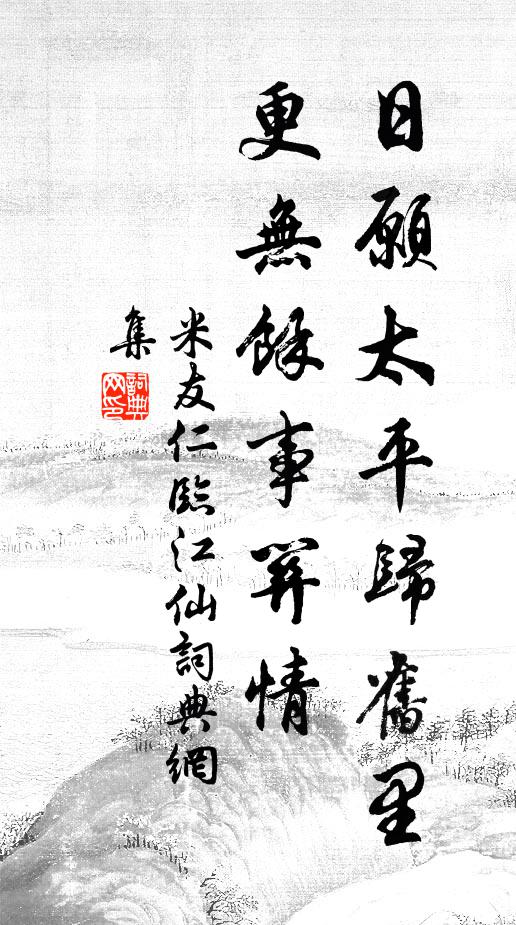 日願太平歸舊里
更無餘事關情
米友仁臨江仙詞典網
集
詞典網印